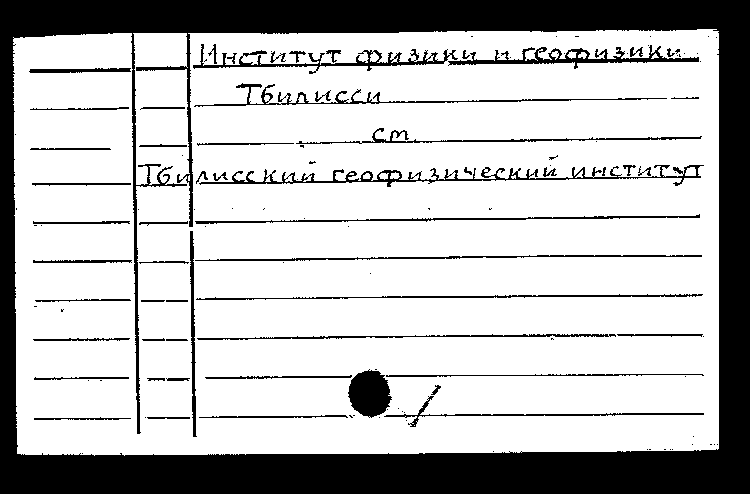 Институт физики и геофизики
Тбилисси
см.
Тбилисский геофизический институт